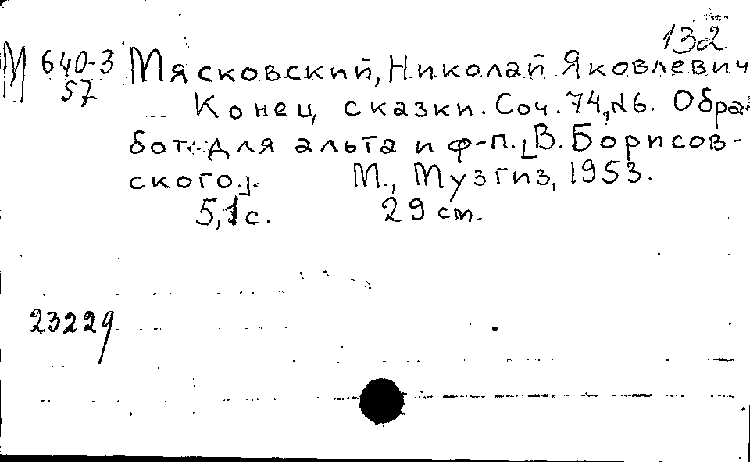 132
М 640-3 Мясковский, Николай Яковлевич
57
Конец сказки. Соч. 74, №6. Обра-
бот. для альта и ф-п. [В. Борисов-
ского.].  М., Музгиз, 1953.
5,1 с.  29 cm.
23229